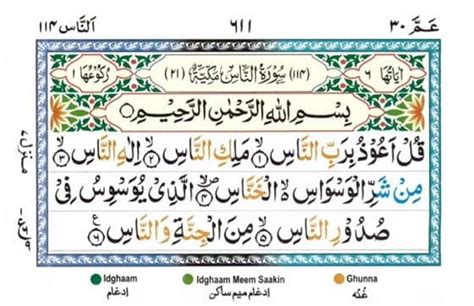 عَمَّ ٣٠ ٦١١ اَلنَّاس ١١٤
اٰيَاتُهَا ٦ (١١٤) سُوْرَةُ النَّاسِ مَكِّيَّةٌ (٢١) رُكُوْعُهَا ١
بِسْمِ اللّٰهِ الرَّحْمٰنِ الرَّحِيْمِ
قُلْ اَعُوْذُ بِرَبِّ النَّاسِ ١ مَلِكِ النَّاسِ ٢ اِلٰهِ النَّاسِ ٣
مِنْ شَرِّ الْوَسْوَاسِ الْخَنَّاسِ ٤ الَّذِيْ يُوَسْوِسُ فِيْ
صُدُوْرِ النَّاسِ ٥ مِنَ الْجِنَّةِ وَالنَّاسِ ٦
Idghaam Idghaam Meem Saakin Ghunna
اِدغَام اِدغَام مِيم سَاكِن غُنّه